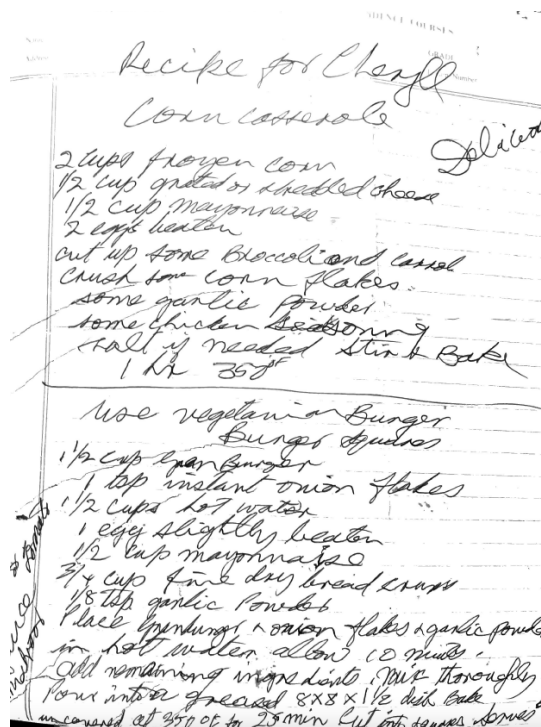 IDENCE COURSES
GRADE
Number
Recipe for Cheryll
Corn Casserole
2 cups frozen corn
1/2 cup grated or shredded cheese
1/2 cup mayonnaise
2 eggs beaten
cut up some Broccoli and carrot
crush some corn flakes
some garlic powder
some chicken seasoning
salt if needed stir & Bake
1 hr 350°F
use vegetarian Burger
Burger Squares
1 1/2 cup Burger
1 tsp instant onion flakes
1 1/2 cups hot water
1 egg slightly beaten
1/2 cup mayonnaise
3/4 cup fine dry bread crums
1/8 tsp garlic Powder
Place onion flakes & garlic powde
in hot water allow 10 mints.
add remaining ingredients mix thoroughly
Pour into a greased 8x8x1 1/2 dish Bake
uncovered at 350 for 25 min cut into squares serves